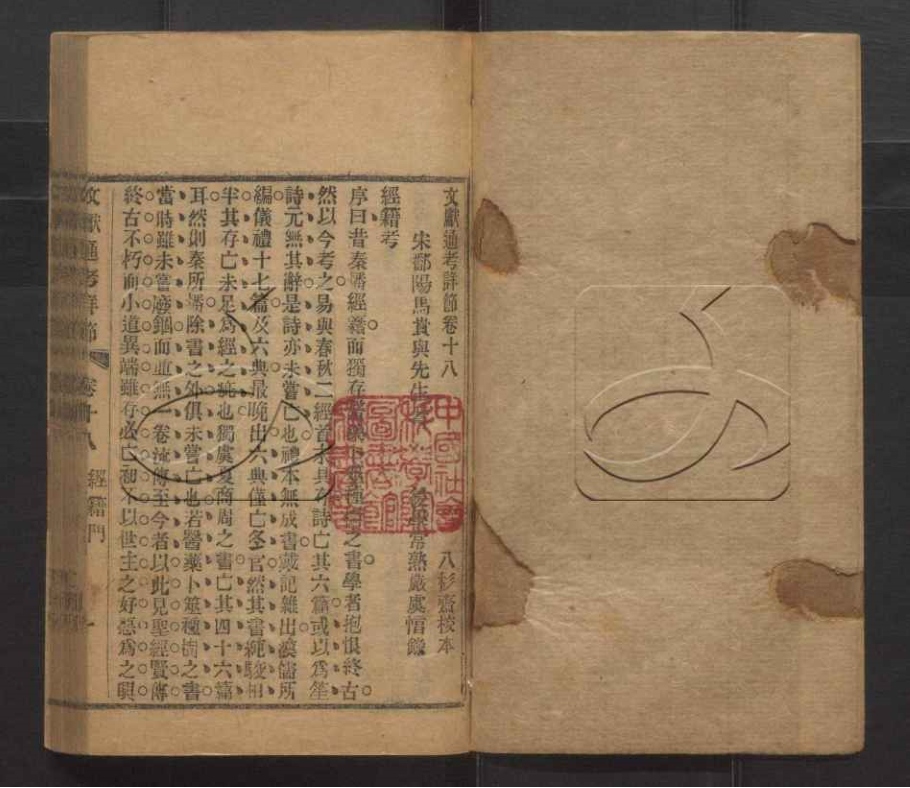 文獻通考詳節卷十八　八杉齋校本
宋鄱陽馬貴與先生　後學常熟嚴虞惇錄
經籍考
序曰昔秦燔經籍而獨存醫藥卜筮種之書學者抱恨終古
然以今考之易與春秋二經首末具存詩亡其六篇或以為笙
詩元無其辭是詩亦未嘗亡也禮本無成書戴記雜出漢儒所
編儀禮十七篇及六典最晚出六典僅亡冬官然其書純駁相
半其存亡未足為經之疵也獨虞夏商周之書亡其四十六篇
耳然則秦所燔除書之外俱未嘗亡也若醫藥卜筮種樹之書
當時雖未嘗廢錮而並無一卷流傳至今者以此見聖經賢傳
終古不朽而小道異端雖存必亡初不以世主之好惡為之興
文獻通考詳節　卷十八　經籍門　一
中國社會科學院圖書館